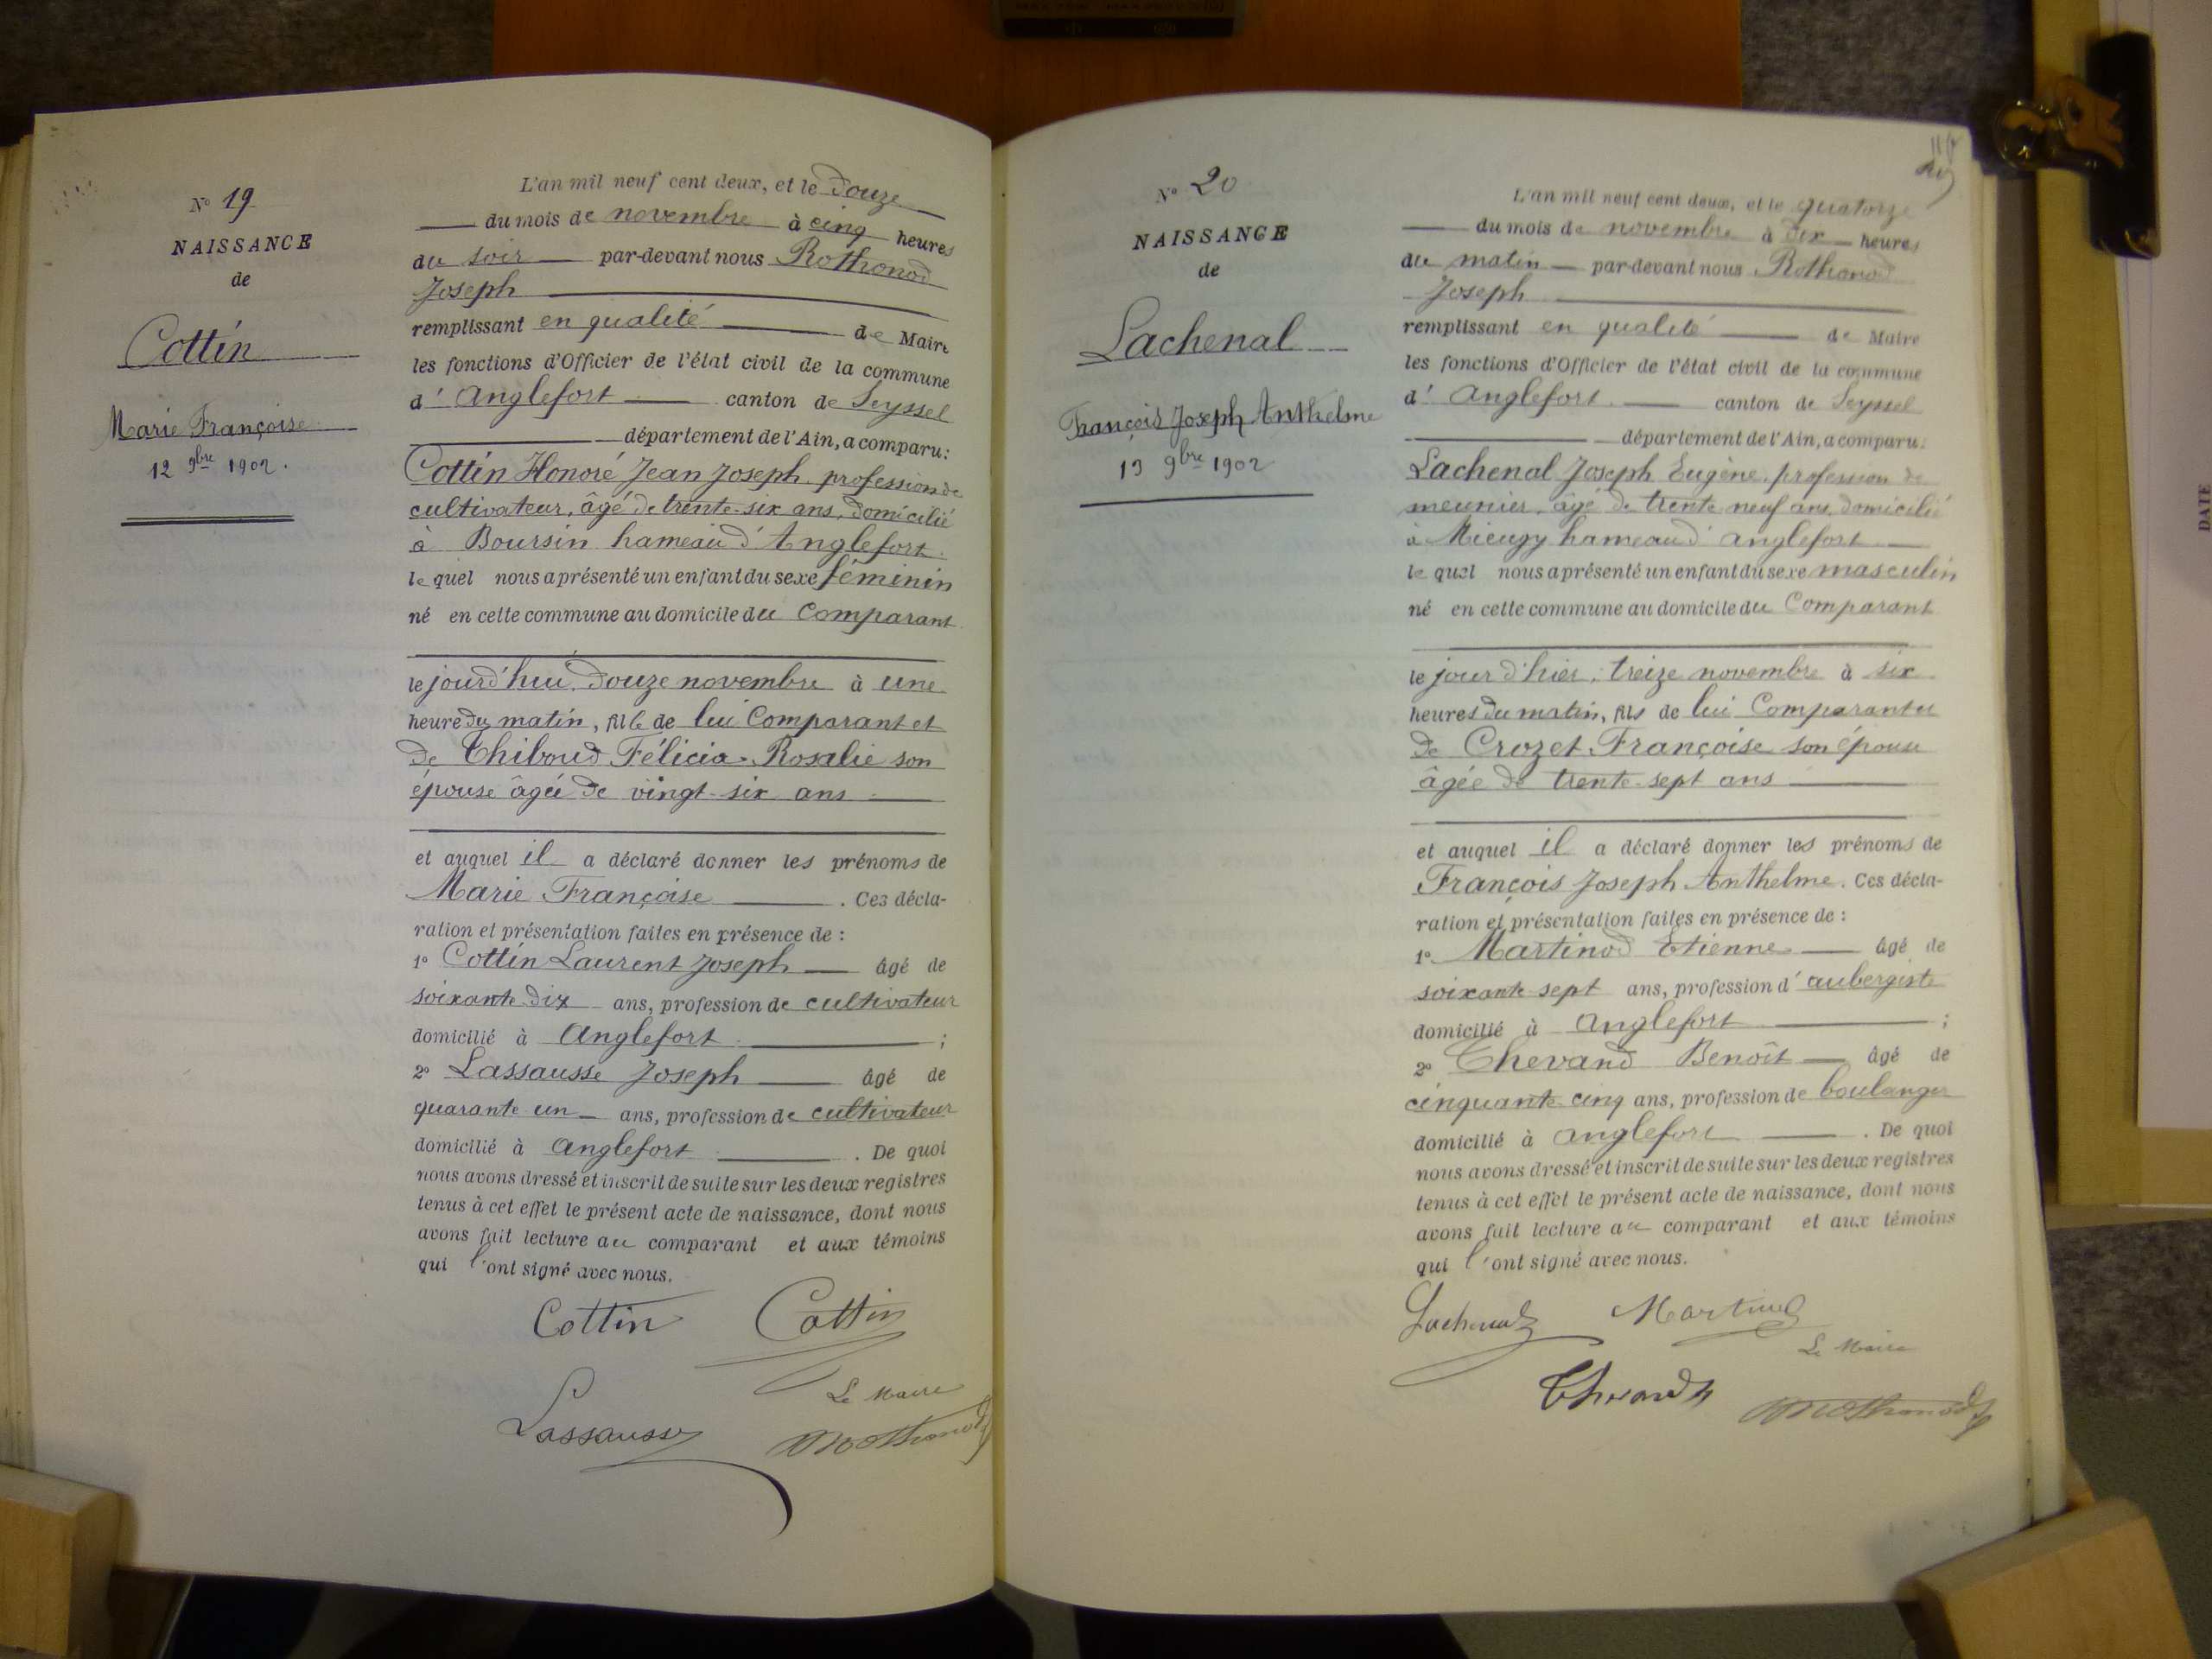 Nº 19
NAISSANCE
de
Cottin
Marie Françoise
12 9bre 1902.
L'an mil neuf cent deux, et le douze
du mois de novembre à cinq heures
du soir par-devant nous Rothonod
Joseph
remplissant en qualité de Maire
les fonctions d'Officier de l'état civil de la commune
d'Anglefort canton de Seyssel
département de l'Ain, a comparu:
Cottin Honoré Jean Joseph profession de
cultivateur, âgé de trente-six ans, domicilié
à Boursin hameau d'Anglefort.
lequel nous a présenté un enfant du sexe féminin
né en cette commune au domicile du Comparant
le jourd'hui douze novembre à une
heure du matin, fille de lui Comparant et
de Thiboud Félicia Rosalie son
épouse âgée de vingt-six ans
et auquel il a déclaré donner les prénoms de
Marie Françoise. Ces décla-
ration et présentation faites en présence de :
1º Cottin Laurent Joseph âgé de
soixante dix ans, profession de cultivateur
domicilié à Anglefort ;
2º Lassausse Joseph âgé de
quarante un ans, profession de cultivateur
domicilié à Anglefort. De quoi
nous avons dressé et inscrit de suite sur les deux registres
tenus à cet effet le présent acte de naissance, dont nous
avons fait lecture au comparant et aux témoins
qui l'ont signé avec nous.
Cottin Cottin
Le Maire
Lassausse Rothonod
Nº 20
NAISSANCE
de
Lachenal
François Joseph Anthelme
13 9bre 1902
L'an mil neuf cent deux, et le quatorze
du mois de novembre à dix heures
du matin par-devant nous Rothonod
Joseph
remplissant en qualité de Maire
les fonctions d'Officier de l'état civil de la commune
d'Anglefort canton de Seyssel
département de l'Ain, a comparu:
Lachenal Joseph Eugène, profession de
meunier, âgé de trente neuf ans, domicilié
à Mieugy hameau d'Anglefort
lequel nous a présenté un enfant du sexe masculin
né en cette commune au domicile du Comparant
le jour d'hier, treize novembre à six
heures du matin, fils de lui Comparant et
de Crozet Françoise son épouse
âgée de trente-sept ans
et auquel il a déclaré donner les prénoms de
François Joseph Anthelme. Ces décla-
ration et présentation faites en présence de :
1º Martinod Etienne âgé de
soixante sept ans, profession d'aubergiste
domicilié à Anglefort ;
2º Thevand Benoît âgé de
cinquante cinq ans, profession de boulanger
domicilié à Anglefort. De quoi
nous avons dressé et inscrit de suite sur les deux registres
tenus à cet effet le présent acte de naissance, dont nous
avons fait lecture au comparant et aux témoins
qui l'ont signé avec nous.
Lachenal Martinod
Le Maire
Thevand Rothonod
DATE